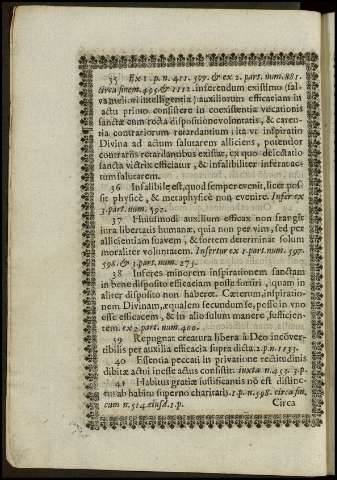 35 Ex 1. p. n. 411. 597. & ex 2. part. num. 881.
circa finem. 499 & 1112. inferendum existimo (sal-
va meliori intelligentia) auxiliorum efficatiam in
actu primo consistere in coexistentia vocationis
sanctæ cum recta dispositione voluntatis, & caren-
tia contrariorum retardantium; ita vt inspiratio
Divina ad actum salutarem alliciens, potentior
contrariis retardantibus existat, ex quo delectatio
sancta victrix efficiatur, & infallibiliter inferat ac-
tum salutarem.
36 Infalibile est, quod semper evenit, licèt pos-
sit physicè, & metaphysicè non evenire. Infer ex
3. part. num. 592.
37 Huiusmodi auxilium efficax non frangit
iura libertatis humanæ, quia non per vim, sed per
allicientiam suavem, & fortem determinat solum
moraliter voluntatem. Infertur ex 1. part. num. 597.
598. & 3. part. num. 275.
38 Inferes minorem inspirationem sanctam
in bene disposito efficaciam posse sortiri, quam in
aliter disposito non haberet. Cæterum, inspiratio-
nem Divinam, æqualem secundum se, posse in vno
esse efficacem, & in alio solum manere, sufficien-
tem. ex 2. part. num. 400.
39 Repugnat creatura libera à Deo incõver-
tibilis per auxilia efficacia supra dicta. 2. p. n. 1133.
40 Essentia peccati in privatione rectitudinis
debitæ actui inesse actus consistit. iuxta n. 453. 3. p.
41 Habitus gratiæ iustificantis nõ est distinc-
tus ab habitu superno charitatis. 1. p. n. 598. circa fin.
cum n. 514. eiusd. 1. p.
Circa